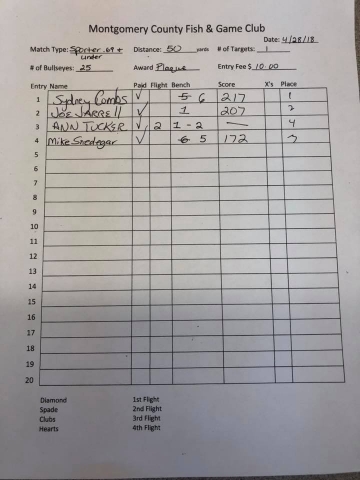 Montgomery County Fish & Game Club
Date: 4/28/18
Match Type: Sporter .69 + under Distance: 50 yards # of Targets: 1
# of Bullseyes: 25 Award Plaque Entry Fee $ 10.00
Entry Name Paid Flight Bench Score X's Place
1 Sydney Combs ✓ 5 6 217 1
2 JOE JARRELL ✓ 1 207 2
3 ANN TUCKER ✓ 2 1 - 2 — 4
4 Mike Snedegar ✓ 6 5 172 3
5
6
7
8
9
10
11
12
13
14
15
16
17
18
19
20
Diamond 1st Flight
Spade 2nd Flight
Clubs 3rd Flight
Hearts 4th Flight